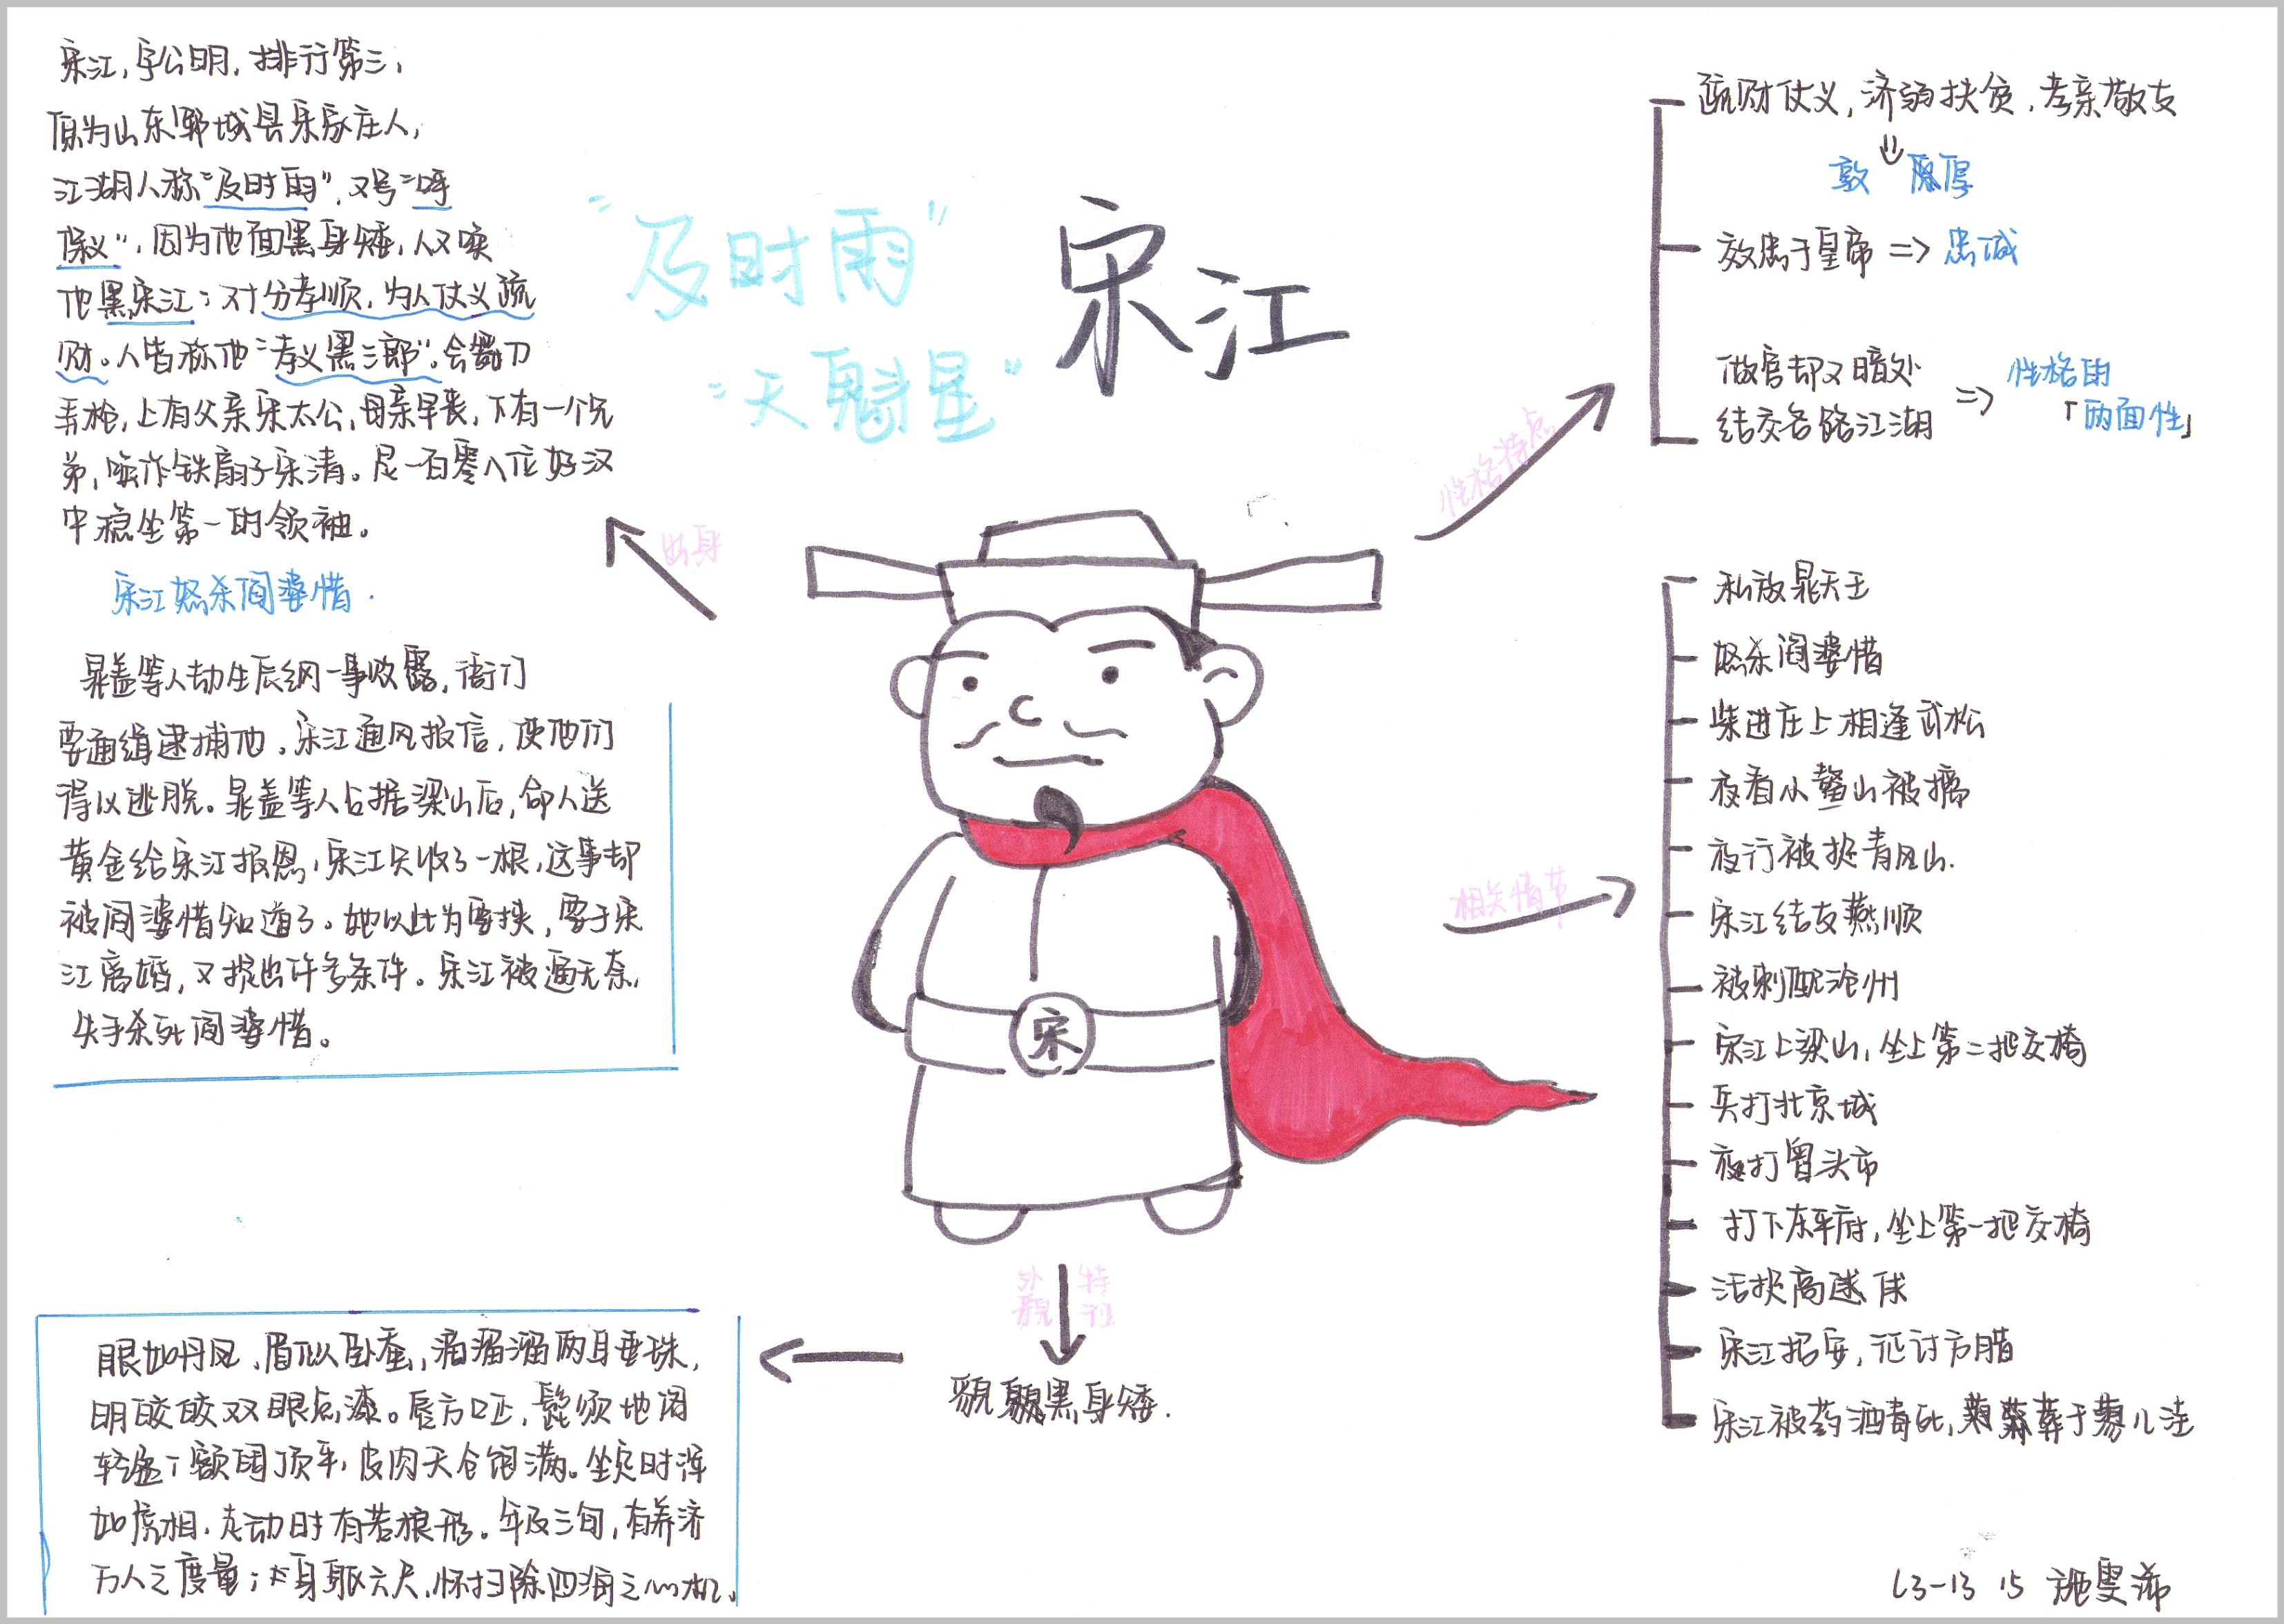 宋江,字公明,排行第三,
原为山东郓城县宋家庄人,
江湖人称"及时雨",又号"呼
保义",因为他面黑身矮,人又唤
他黑宋江;对分孝顺,为人仗义疏
财。人皆称他"孝义黑三郎"。会舞刀
弄枪,上有父亲宋太公,母亲早丧,下有一个兄
弟,唤作铁扇子宋清。是一百零八位好汉
中稳坐第一的领袖。
出身
宋江怒杀阎婆惜.
晁盖等人劫生辰纲一事败露,衙门
要通缉逮捕他。宋江通风报信,使他们
得以逃脱。晁盖等人占据梁山后,命人送
黄金给宋江报恩,宋江只收了一根,这事却
被阎婆惜知道了。她以此为要挟,要于宋
江离婚,又提出许多条件。宋江被逼无奈,
失手杀死阎婆惜。
"及时雨"
"天魁星"
宋江
宋
性格特点
疏财仗义,济弱扶贫,孝亲敬友
敦厚
效忠于皇帝 => 忠诚
做官却又暗处
结交各路江湖 =>
性格的
「两面性」
相关情节
私放晁天王
怒杀阎婆惜
柴进庄上相逢武松
夜看小鳌山被擒
夜行被捉青风山.
宋江结友燕顺
被刺配沧州
宋江上梁山,坐上第二把交椅
兵打北京城
夜打曾头市
打下东平府,坐上第一把交椅
活捉高俅
宋江招安,征讨方腊
宋江被药酒毒死,葬于蓼儿洼
外貌
特
貌黑身矮.
眼如丹凤,眉似卧蚕,滴溜溜两耳垂珠,
明皎皎双眼点漆。唇方口正,髭须地阁
轻盈;额阔顶平,皮肉天仓饱满。坐定时浑
如虎相,走动时有若狼形。年及三旬,有养济
万人之度量;身躯六尺,怀扫除四海之心机。
L3-13 15 施雯